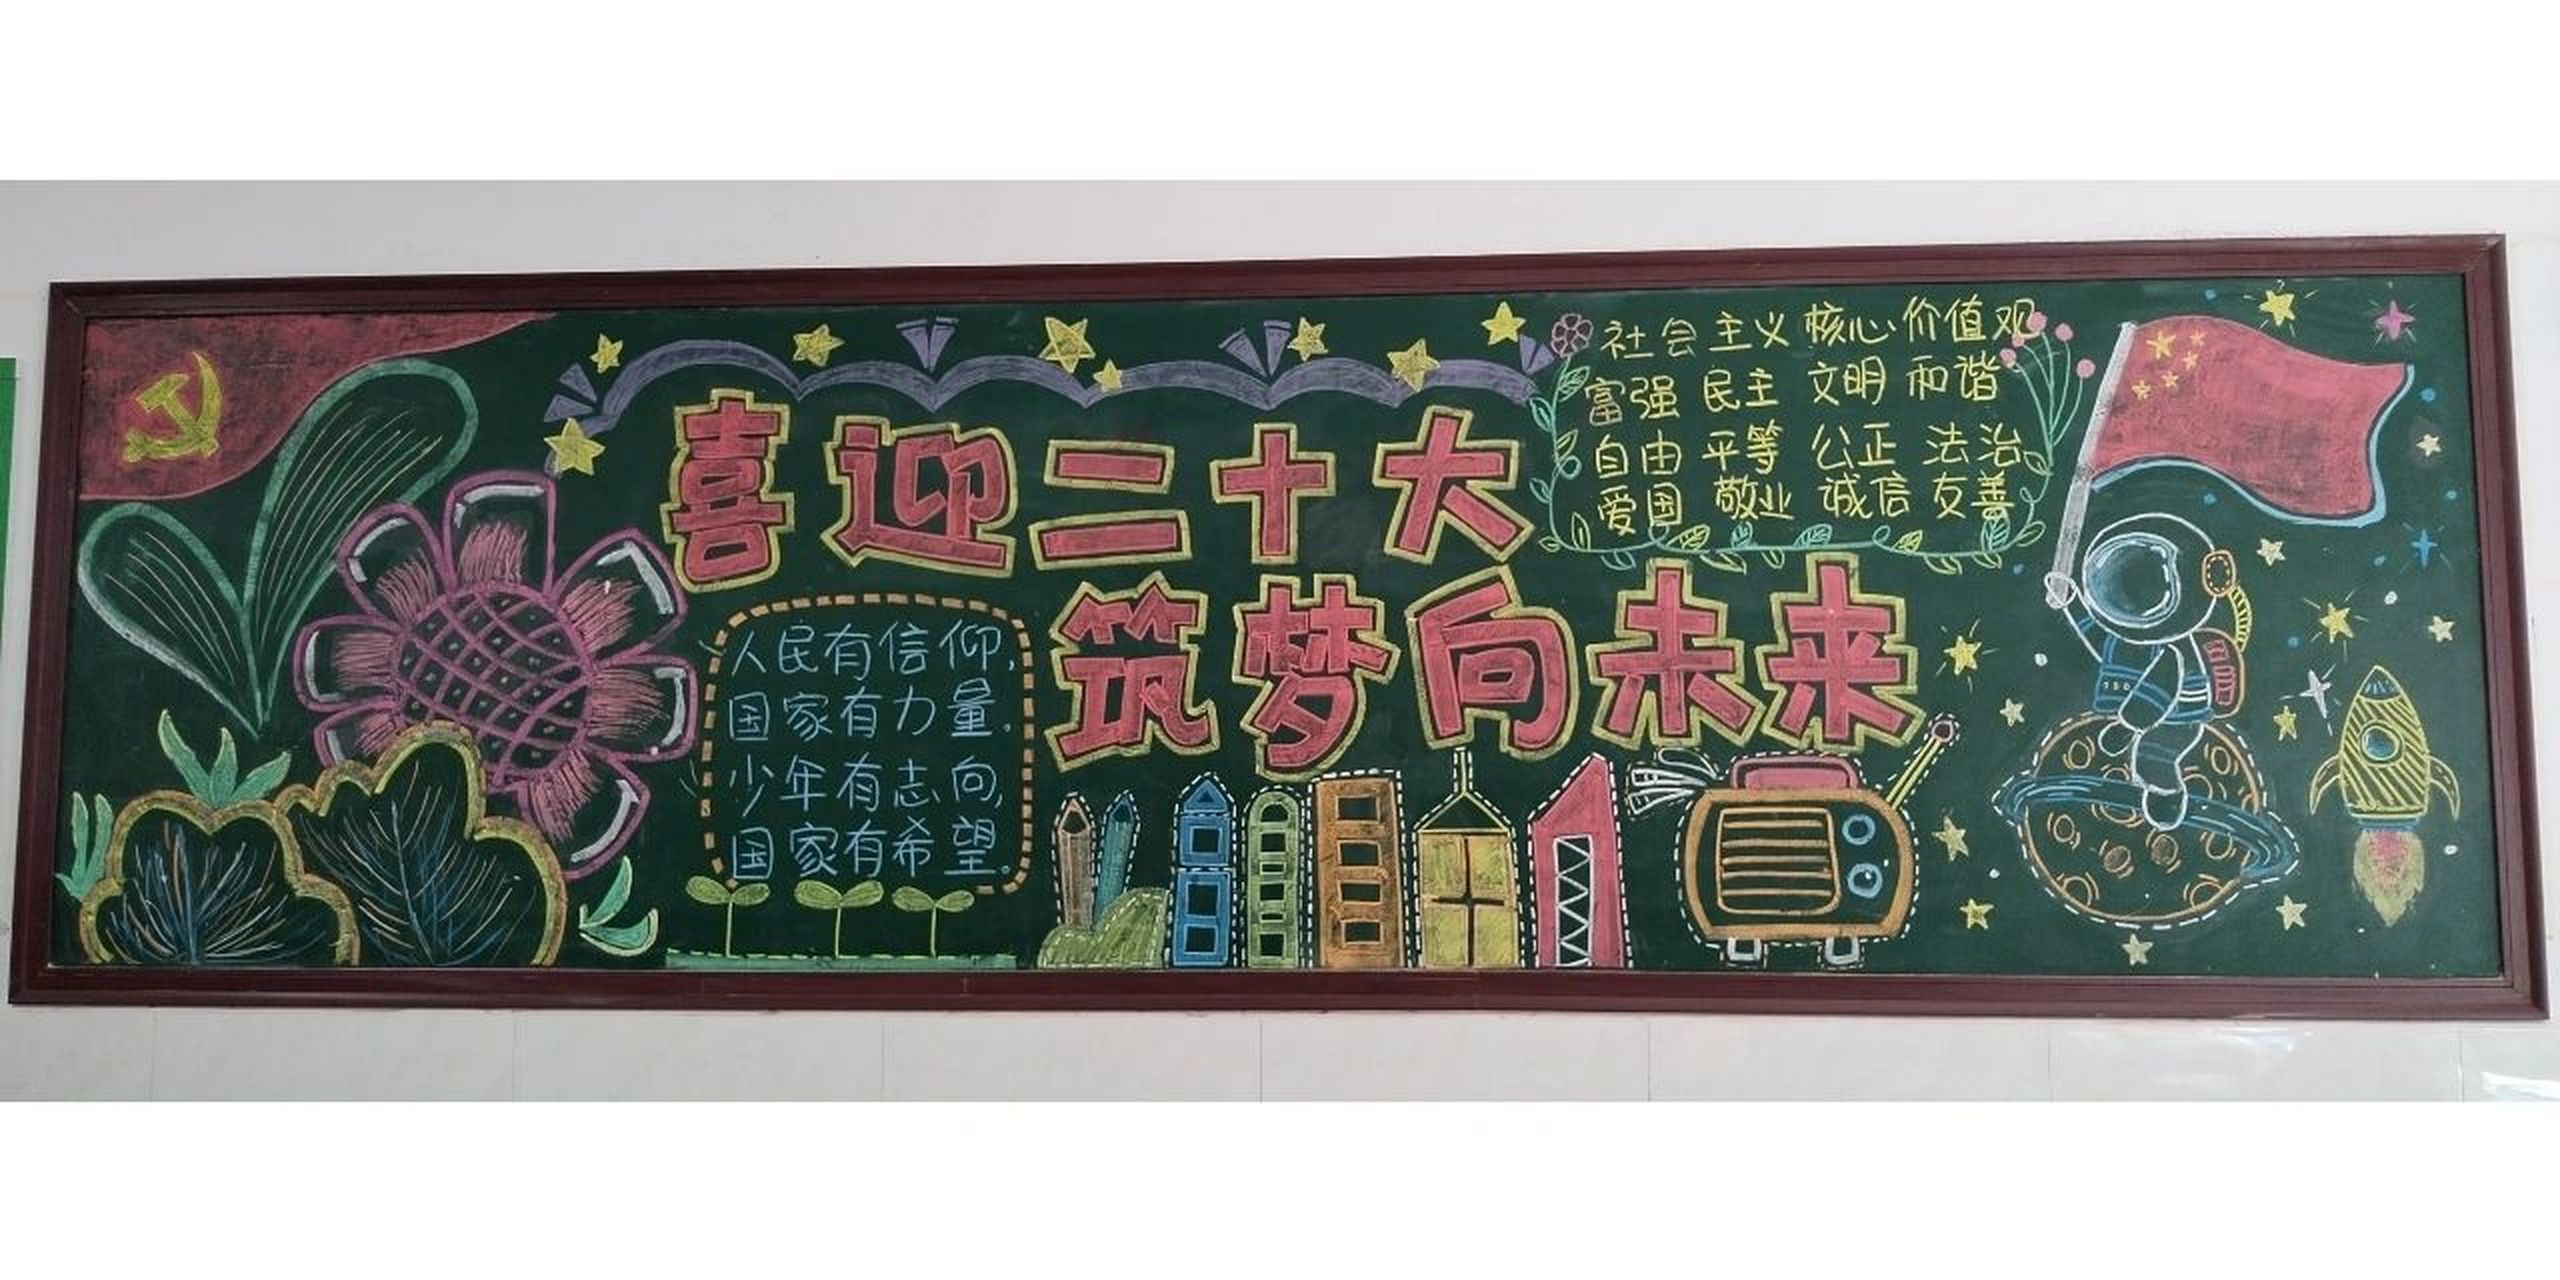 喜迎二十大
筑梦向未来
人民有信仰,
国家有力量。
少年有志向,
国家有希望。
社会主义核心价值观
富强 民主 文明 和谐
自由 平等 公正 法治
爱国 敬业 诚信 友善